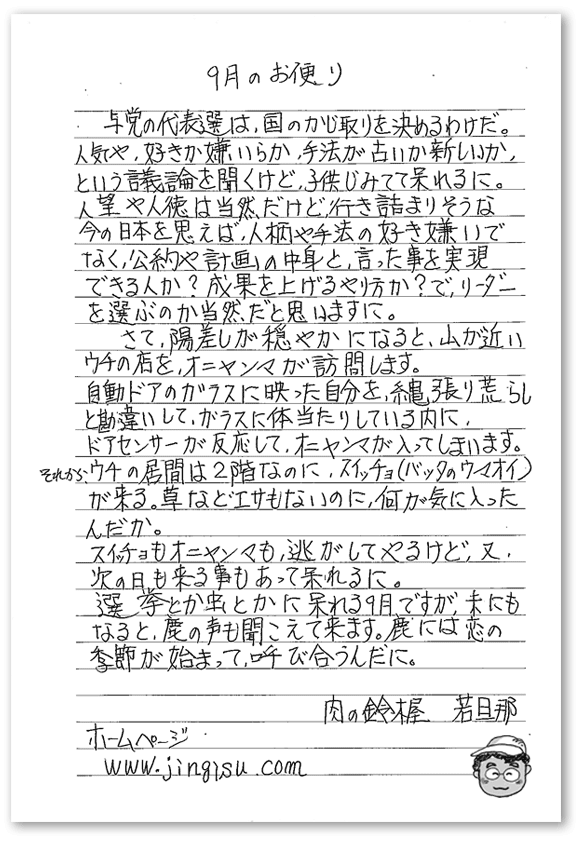 9月のお便り
与党の代表選は、国のかじ取りを決めるわけだ。
人気や、好きか嫌いらか、手法が古いか新しいか、
という議論を聞くけど、子供じみてて呆れるに。
人望や人徳は当然だけど、行き詰まりそうな
今の日本を思えば、人柄や手法の好き嫌いで
なく、公約や計画の中身と、言った事を実現
できる人か?成果を上げるやり方か?で、リーダー
を選ぶのが当然だと思いますに。
さて、陽差しが穏やかになると、山が近い
ウチの店を、オニヤンマが訪問します。
自動ドアのガラスに映った自分を、縄張り荒らし
と勘違いして、ガラスに体当たりしている内に、
ドアセンサーが反応して、オニヤンマが入ってしまいます。
それから、ウチの居間は2階なのに、スイッチョ(バッタのウマオイ)
が来る。草などエサもないのに、何が気に入った
んだか。
スイッチョもオニヤンマも、逃がしてやるけど、又、
次の日も来る事もあって呆れるに。
選挙とか虫とかに呆れる9月ですが、末にも
なると、鹿の声も聞こえて来ます。鹿には恋の
季節が始まって、呼び合うんだに。
肉の鈴木屋 若旦那
ホームページ
www.jingisu.com